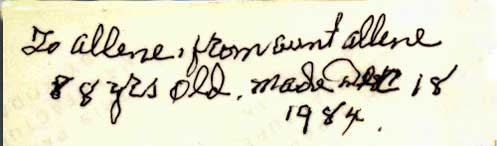 To allene, from aunt allene
88 yrs old. made 18
1984.